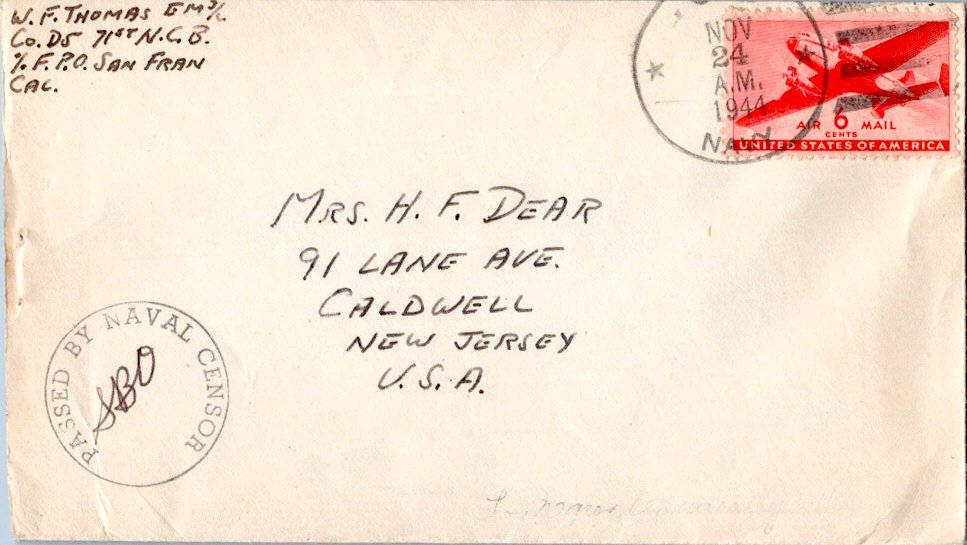 W. F. THOMAS EM 3/c
Co. D5 71ST N.C.B.
% F.P.O. SAN FRAN
CAL.
NOV
24
A.M.
1944
NAVY
AIR 6 MAIL
CENTS
UNITED STATES OF AMERICA
MRS. H. F. DEAR
91 LANE AVE.
CALDWELL
NEW JERSEY
U.S.A.
PASSED BY NAVAL CENSOR